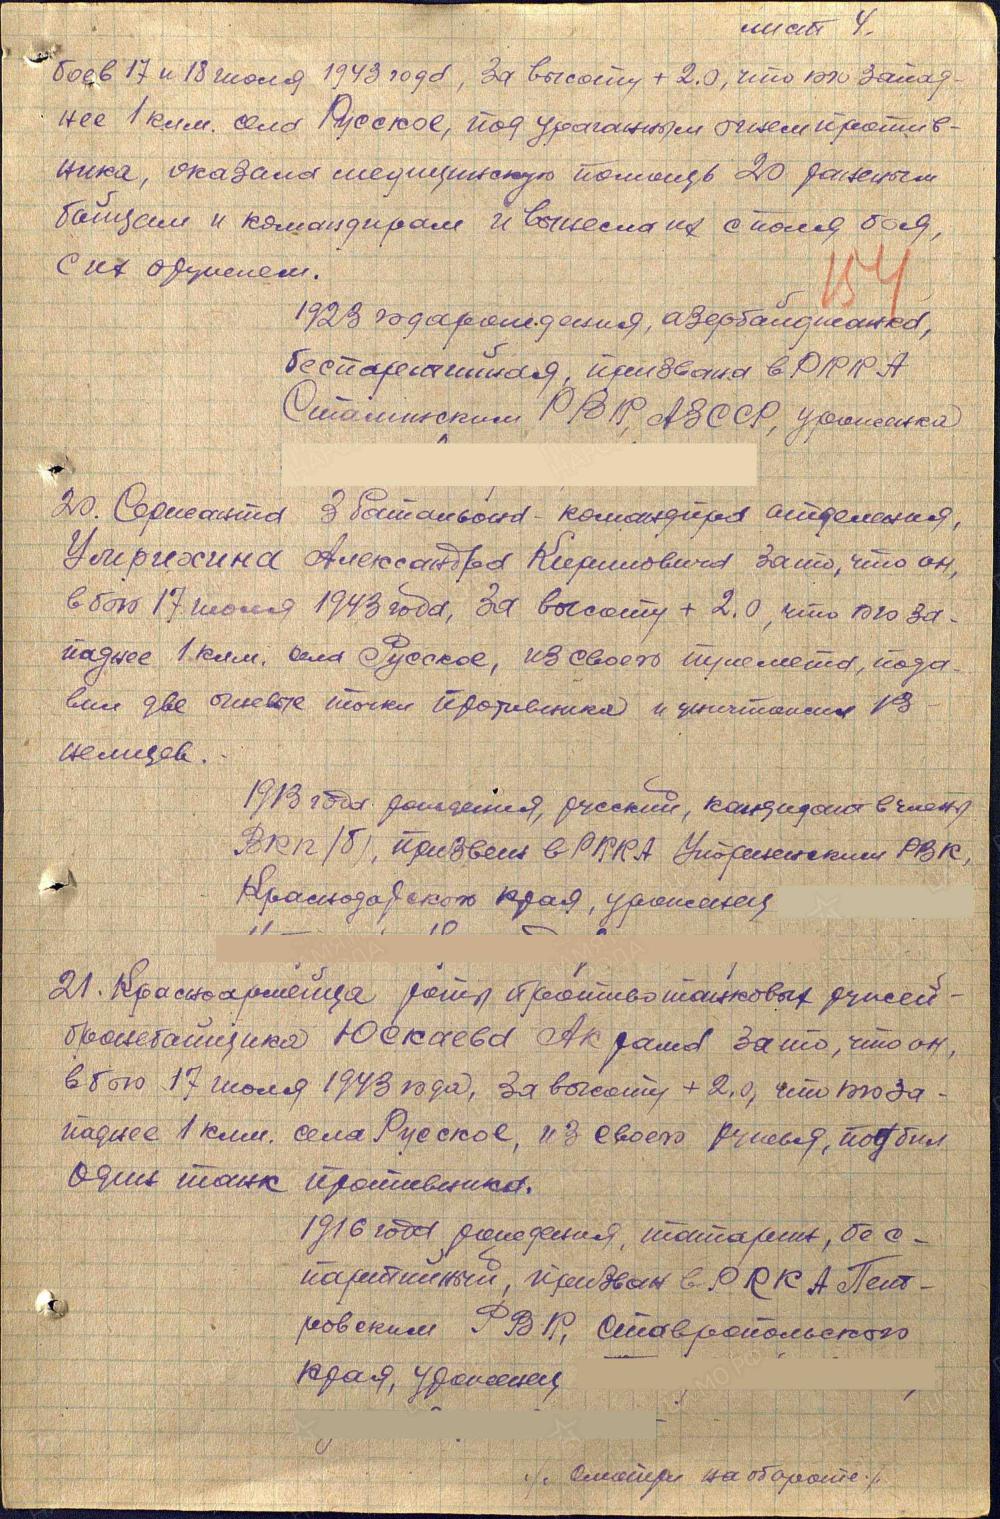 лист 4.
боев 17 и 18 июля 1943 года, за высоту + 2.0, что юго запад-
нее 1 клм. села Русское, под ураганным огнем против-
ника, оказала медицинскую помощь 20 раненым
бойцам и командирам и вынесла их с поля боя,
с их оружием.
154
1923 года рождения, азербайджанка,
беспартийная, призвана в РККА
Сталинским РВК, АЗССР, уроженка
20. Сержанта 3 батальона - командира отделения,
Александра Кирилловича за то, что он,
в бою 17 июля 1943 года, за высоту + 2.0, что юго за-
паднее 1 клм. села Русское, из своего пулемета, пода-
вил две огневые точки противника и уничтожил 13
немцев. -
1913 года рождения, русский, кандидат в члены
ВКП/б/, призван в РККА РВК,
Краснодарского края, уроженец
21. Красноармейца роты противотанковых ружей -
бронебойщика Юскаева Акрама за то, что он,
в бою 17 июля 1943 года, за высоту + 2.0, что юго за-
паднее 1 клм. села Русское, из своего ружья, подбил
один танк противника.
1916 года рождения, татарин, бес-
партийный, призван в РККА Пет-
ровским РВК, Ставропольского
края, уроженец
/. Смотри на обороте ./.